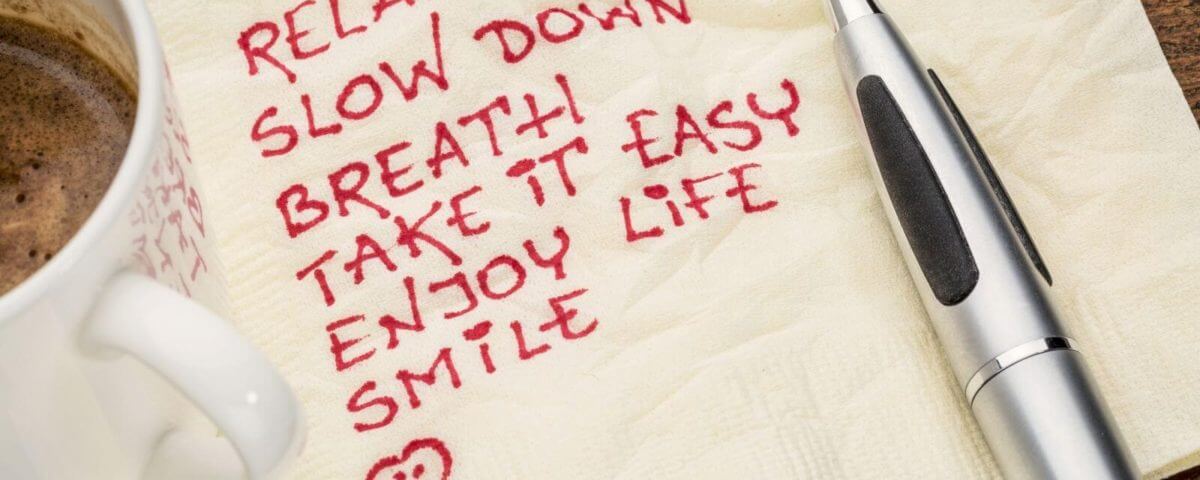 RELAX
SLOW DOWN
BREATH
TAKE IT EASY
ENJOY LIFE
SMILE